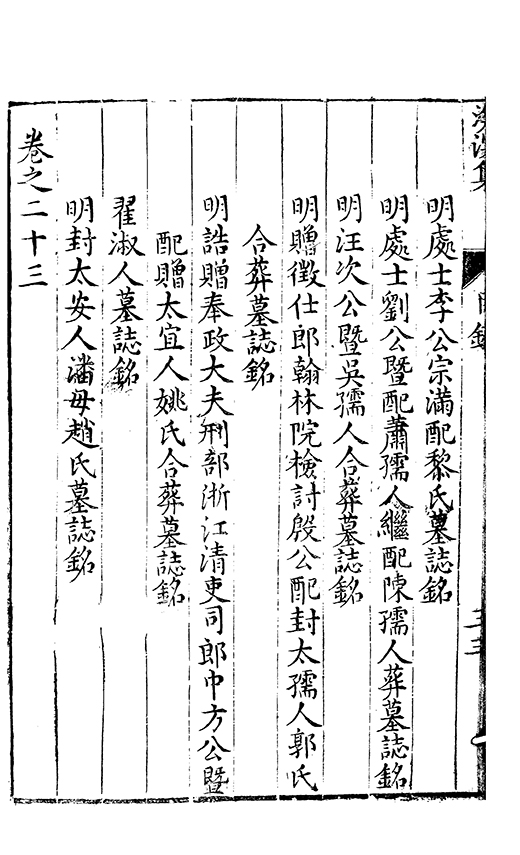 集
目錄
明處士李公宗滿配黎氏墓誌銘
明處士劉公暨配蕭孺人繼配陳孺人葬墓誌銘
明汪次公暨吳孺人合葬墓誌銘
明贈徵仕郎翰林院檢討殷公配封太孺人郭氏
合葬墓誌銘
明誥贈奉政大夫刑部浙江清吏司郎中方公暨
配贈太宜人姚氏合葬墓誌銘
翟淑人墓誌銘
明封太安人潘母趙氏墓誌銘
卷之二十三